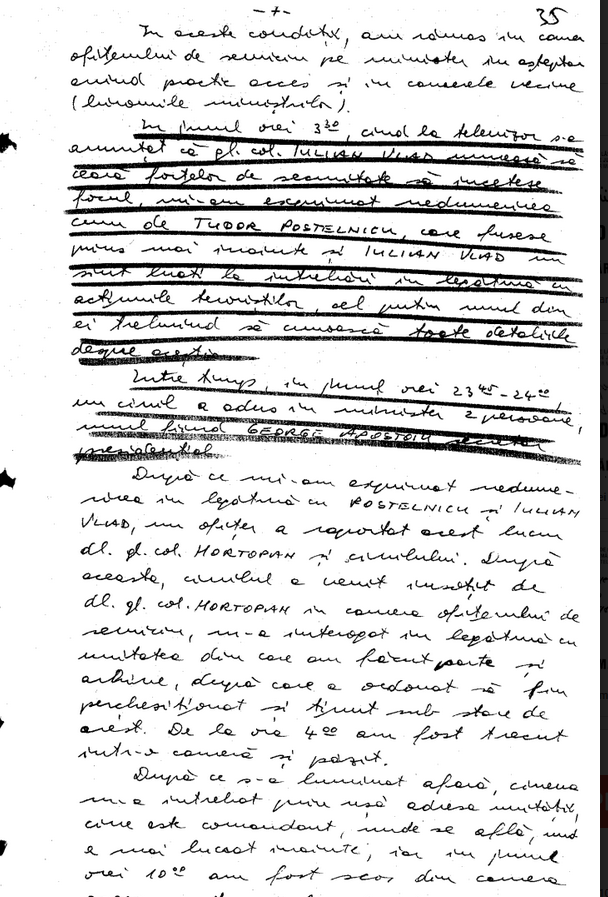 -7-
35
În aceste condiții, am rămas în camera
ofițerului de serviciu pe minister în așteptare
avînd practic acces și în camerele vecine
(birourile miniștrilor).
În jurul orei 3³⁰, cînd la televizor s-a
anunțat că gl. col. IULIAN VLAD urmează să
ceară forțelor de securitate să înceteze
focul, mi-am exprimat nedumerirea
cum de TUDOR POSTELNICU, care fusese
prins mai înainte și IULIAN VLAD nu
sînt luați la întrebări în legătură cu
acțiunile teroriștilor, cel puțin unul din
ei trebuind să cunoască toate detaliile
despre aceștia
Între timp, în jurul orei 23⁴⁵-24⁰⁰,
un civil a adus în minister 2 persoane,
unul fiind GEORGE APOSTOIU secretar
prezidențial.
După ce mi-am exprimat nedume-
rirea în legătură cu POSTELNICU și IULIAN
VLAD, un ofițer a raportat acest lucru
dl. gl. col. HORTOPAN și civilului. După
aceasta, civilul a venit însoțit de
dl. gl. col. HORTOPAN în camera ofițerului de
serviciu, m-a interogat în legătură cu
unitatea din care am făcut parte și
arhive, după care a ordonat să fiu
perchesiționat și ținut sub stare de
arest. De la ora 4⁰⁰ am fost trecut
într-o cameră și păzit.
După ce s-a luminat afară, cineva
m-a întrebat prin ușă adresa unității,
cine este comandant, unde se află, unde
a mai lucrat înainte, iar în jurul
orei 10⁰⁰ am fost scos din camera